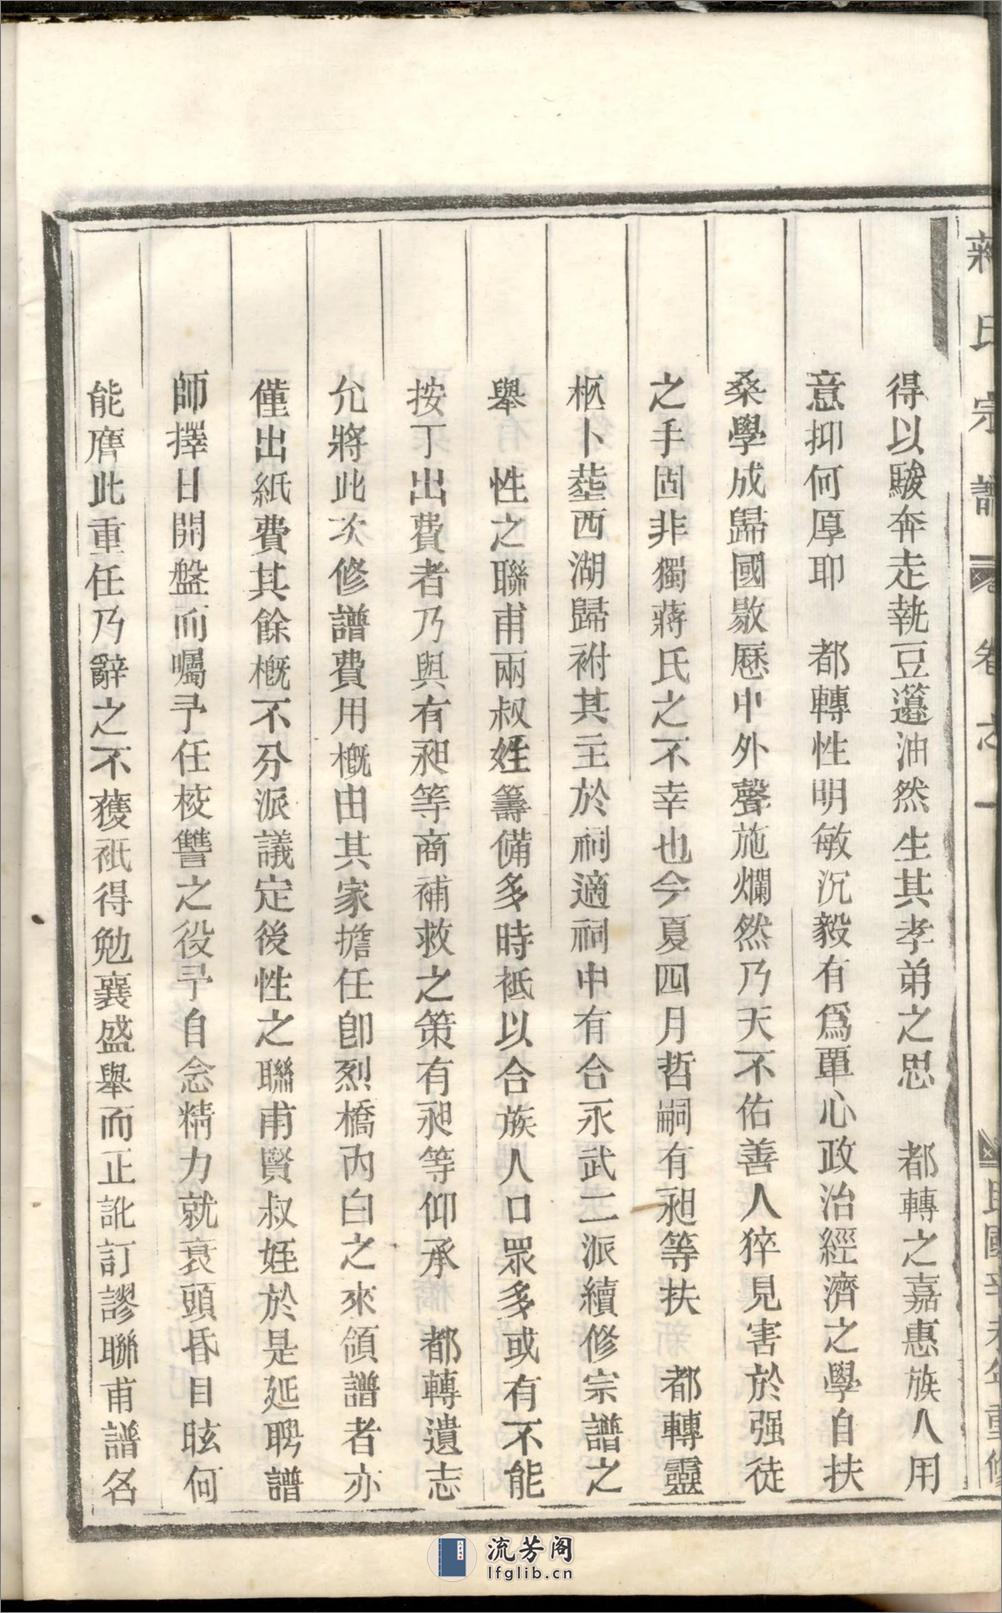 蔣氏宗譜 卷之一 民國辛未年重修
得以駿奔走執豆籩油然生其孝弟之思 都轉之嘉惠族人用
意抑何厚耶 都轉性明敏沉毅有爲單心政治經濟之學自扶
桑學成歸國敭歷中外聲施爛然乃天不佑善人猝見害於强徒
之手固非獨蔣氏之不幸也今夏四月哲嗣有昶等扶 都轉靈
柩卜塟西湖歸祔其主於祠適祠中有合永武二派續修宗譜之
舉 性之聯甫兩叔姪籌備多時祗以合族人口眾多或有不能
按丁出費者乃與有昶等商補救之策有昶等仰承 都轉遺志
允將此次修譜費用概由其家擔任卽烈橋內白之來領譜者亦
僅出紙費其餘概不分派議定後性之聯甫賢叔姪於是延聘譜
師擇日開盤而囑予任校讐之役予自念精力就衰頭昏目眩何
能膺此重任乃辭之不獲祗得勉襄盛舉而正訛訂謬聯甫譜名
流芳阁
lfglib.cn